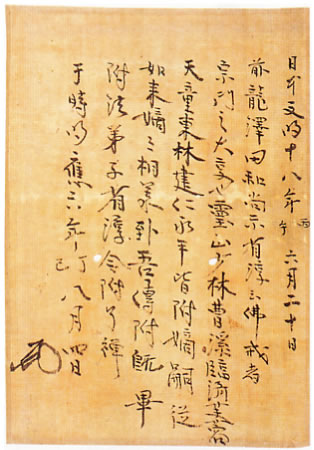 日本文明十八年丙午六月二十日
前龍澤田和尚示有淳云佛戒者
宗門之大事也靈山少林曹溪臨濟
天童東林建仁永平皆附嫡嗣従
如来嫡々相承到吾傳附既畢
附法弟子有淳今附了禅
于時明應六年丁巳八月四日